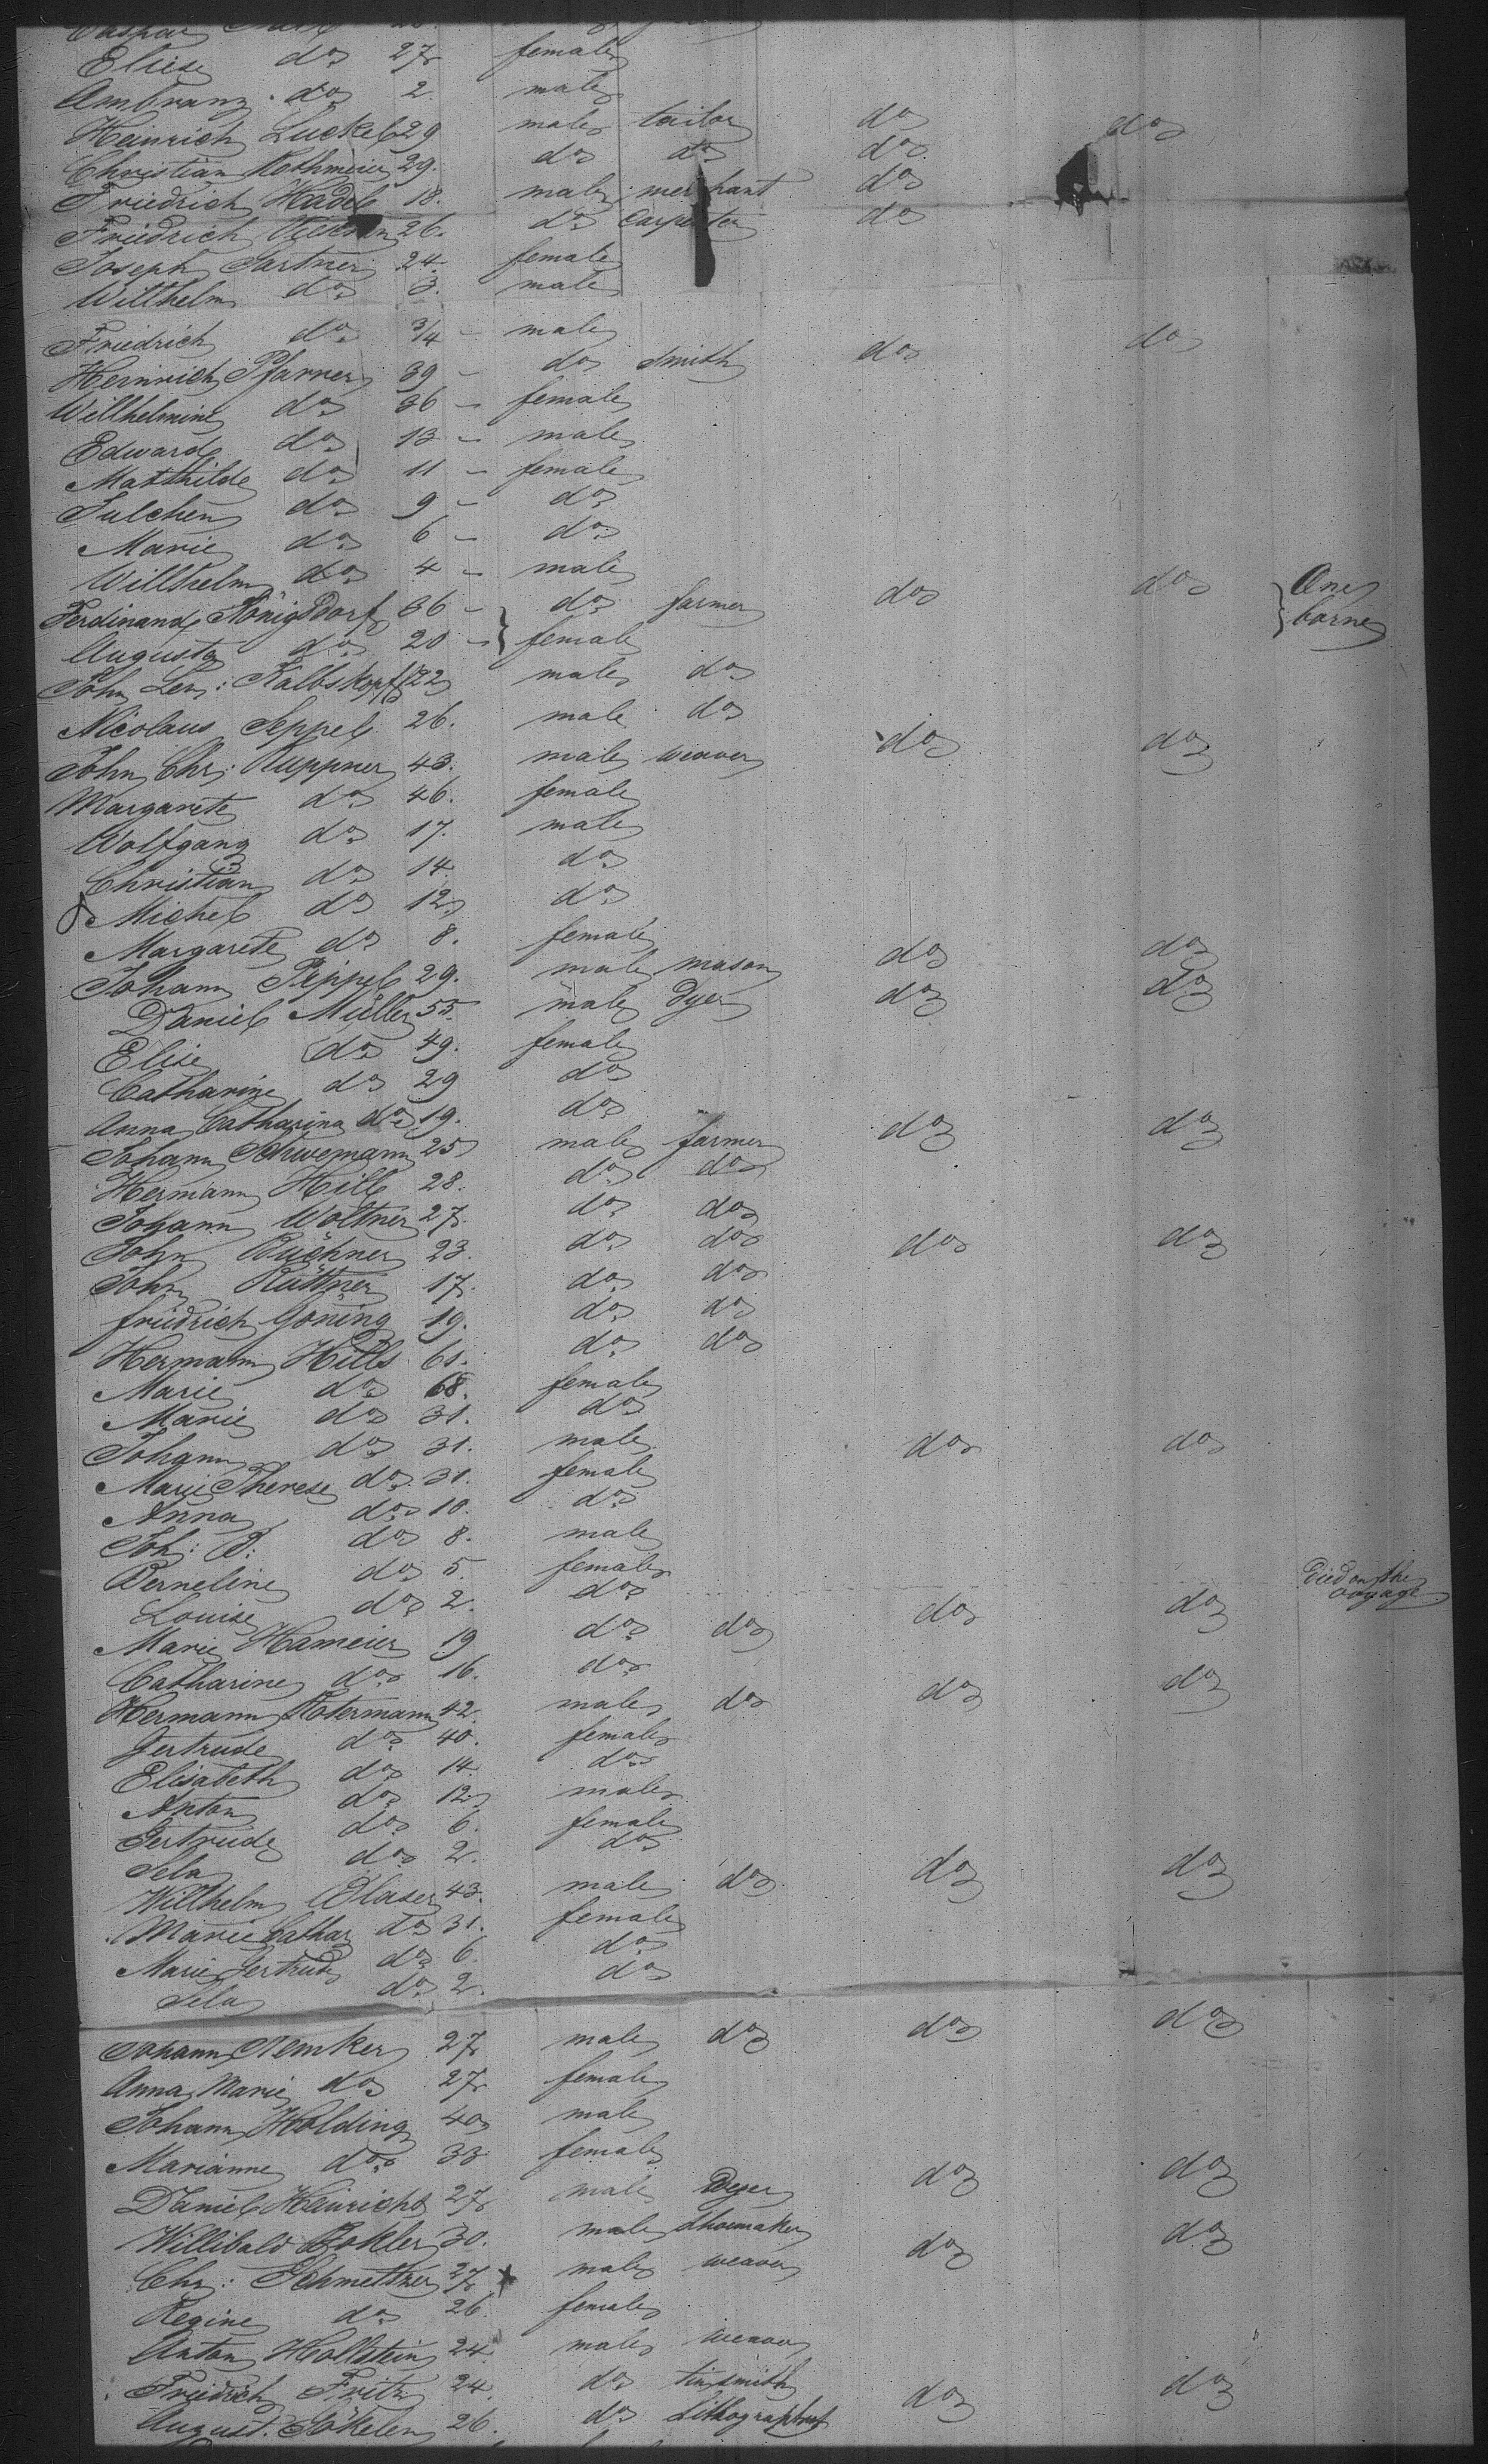 Elise do 27 female
Ambranz do 2. male
Heinrich Luckel 29 male tailor do do
Christian Rothmeier 29. do do do
Friedrich Hadel 18. male merchant do
Friedrich 26. do carpenter do
Joseph Sartner 24. female
Willhelm do 3. male
Friedrich do 3/4 - male
Heinrich Pfarrer 39 - do smith do do
Willhelmine do 36 - female
Edward do 13 - male
Matthilde do 11 - female
Julchen do 9 - do
Marie do 6 - do
Willhelm do 4 - male
Ferdinand Königsdorf 36 - do farmer do do One
Augusta do 20 - female borne
John Len: Kalbskopf 22 male do
Nicolaus Seppel 26. male do
John Chr: Ruppner 43. male weaver do do
Margarete do 46. female
Wolfgang do 17. male
Christian do 14. do
Michel do 12 do
Margarete do 8. female
Johann Pippel 29. male mason do do
Daniel Müller 55. male dyer do do
Elise do 49. female
Catharine do 29 do
Anna Catharina do 19. do
Johann Schwemann 25 male farmer do do
Hermann Hille 28. do do
Johann Woltner 27. do do
John Büchner 23. do do do do
John Rüttner 17. do do
friedrich Göning 19. do do
Hermann Hills 61. do do
Marie do 68. female
Marie do 31. do
Johann do 31. male do do
Marie Therese do 31. female
Anna do 10. do
Joh: B: do 8. male
Berneline do 5. female
Louise do 2. do Died on the voyage
Marie Hameier 19 do do do do
Catharine do 16. do
Hermann Kotermann 42. male do do do
Gertrude do 40. female
Elisabeth do 14. do
Anton do 12 male
Gertrude do 6. female
Sela do 2. do
Willhelm Blaser 43. male do do do
Marie Cathar do 31. female
Marie Gertrude do 6. do
Sela do 2. do
Johann Remker 27 male do do do
Anna Marie do 27 female
Johann Holding 40 male
Marianne do 33 female
Daniel Heinrichs 27 male Dyer do do
Willibald Bohler 30. male shoemaker
Chr: Schmettner 27 male weaver do do
Regine do 26. female
Anton Hollstein 24. male weaver
Friedrich Fritz 24. do tinsmith
August Sökelen 26. do Lithographist do do